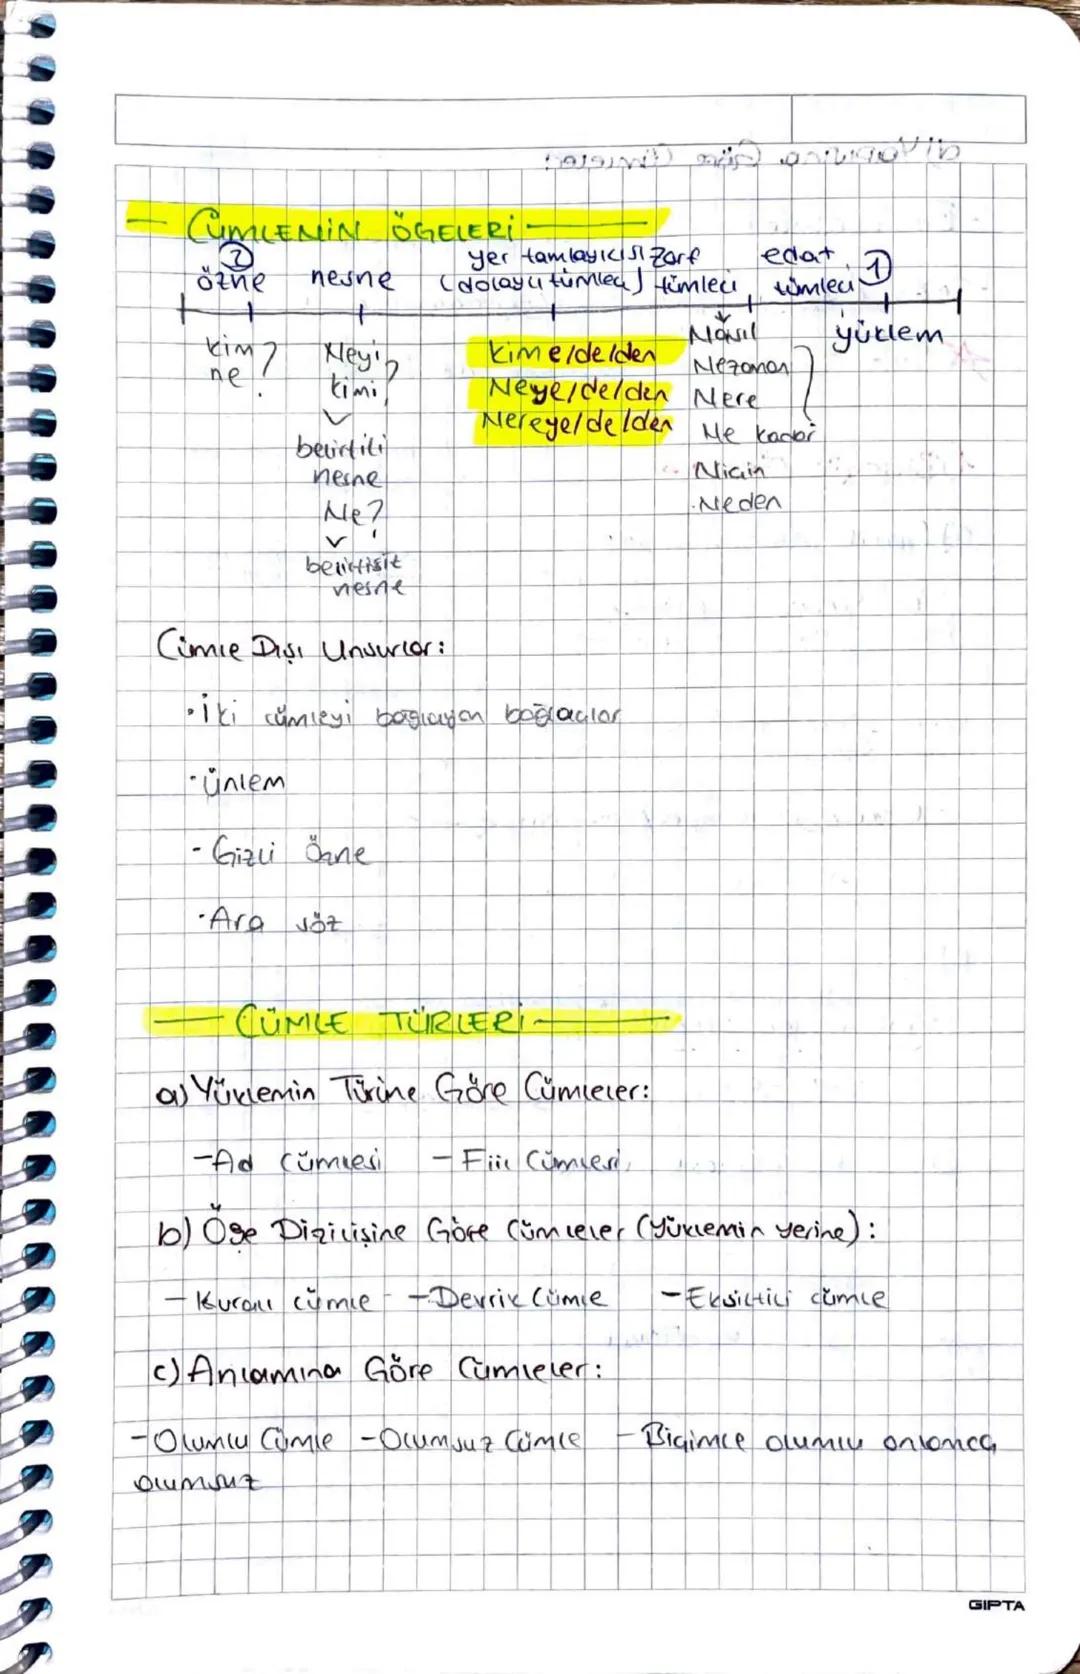 CÜMLENİN ÖGELERİ
② yer tamlayıcısı zarf edat ①
özne nesne (dolaylı tümleç) tümleci tümleci
kim ne? Neyi, kimi? Kime/de/den Nasıl yüklem
Neye/de/den Ne zaman
Nereye/de/den Nere
belirtili nesne Ne kadar
Ne? Niçin
Neden
belirtisiz nesne
Cümle Dışı Unsurlar:
• İki cümleyi bağlayan bağlaçlar
• Ünlem
- Gizli Özne
• Ara söz
CÜMLE TÜRLERİ
a) Yüklemin Türüne Göre Cümleler:
- Ad Cümlesi - Fiil Cümlesi
b) Öge Dizilişine Göre Cümleler (Yüklemin yerine):
- Kurallı cümle - Devrik Cümle - Eksiltili cümle
c) Anlamına Göre Cümleler:
- Olumlu Cümle - Olumsuz Cümle - Biçimce olumlu anlamca
olumsuz
GIPTA